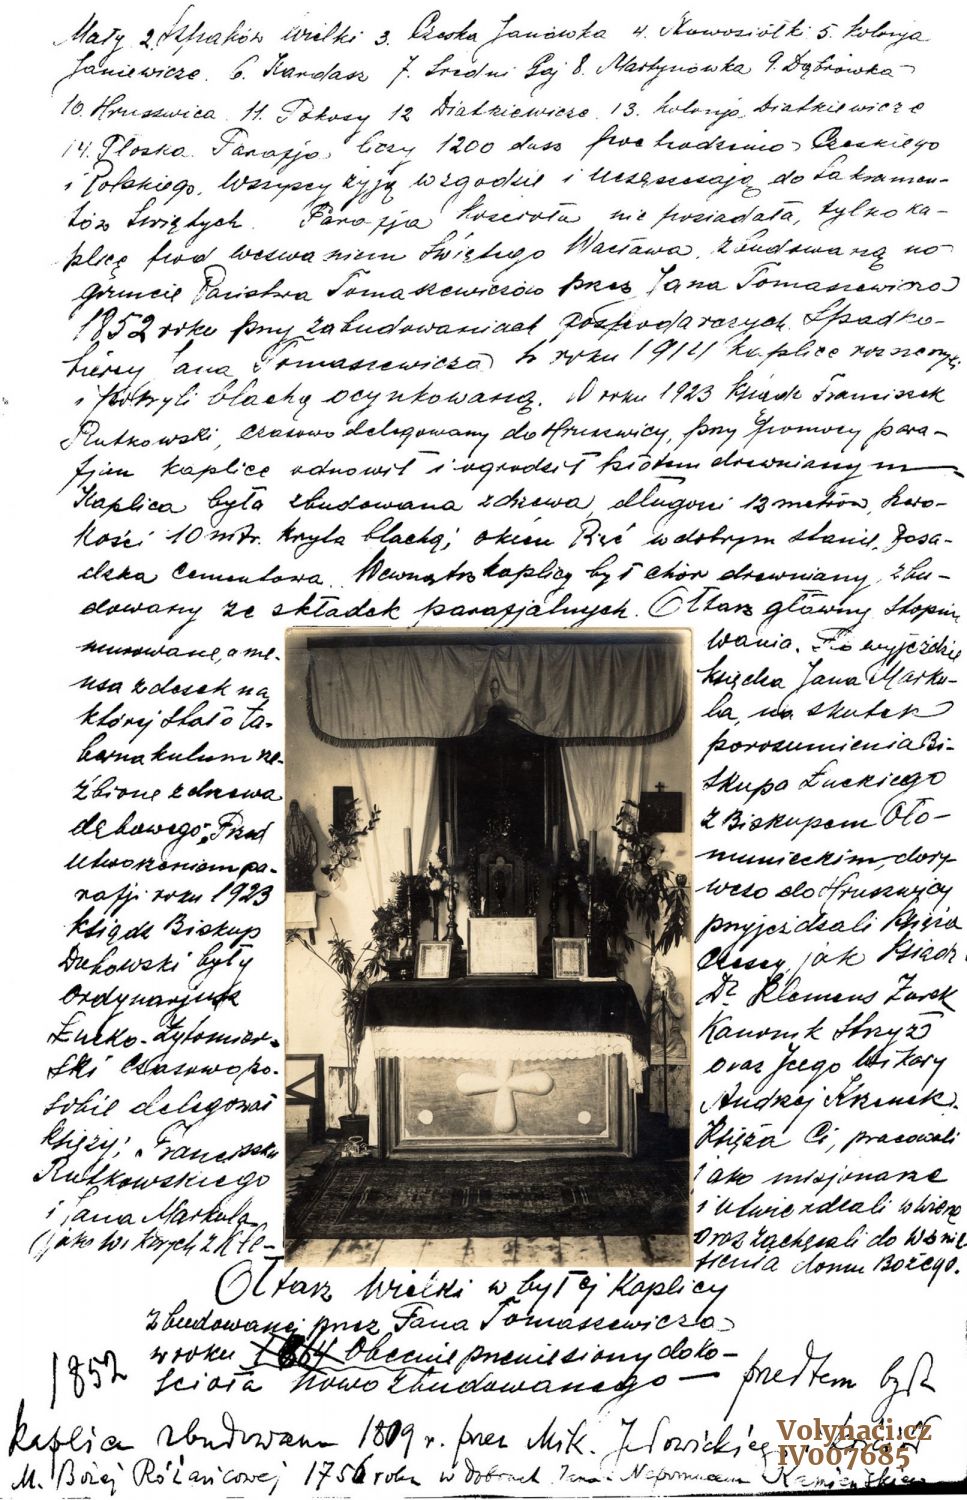 Mały 2. Szpaków Wielki 3. Czeska Janówka 4. Nowosiółki 5. Kolonja
Janiewicze. 6. Kardasz 7. Średni Gaj 8. Martynówka 9. Dąbrówka
10. Hruszwica. 11. Tokosy 12 Diatkiewicze. 13. Kolonja Diatkiewicze
14. Płoska. Parafja liczy 1200 dusz pochodzenia Czeskiego
i Polskiego. Wszyscy żyją w zgodzie i uczęszczają do Sakramen-
tów Świętych. Parafja Kościoła nie posiadała, tylko ka-
plicę pod wezwaniem Świętego Wacława, zbudowaną na
gruncie Państwa Tomaszewiczów przez Jana Tomaszewicza
1852 roku przy zabudowaniach gospodarczych. Spadko-
biercy Jana Tomaszewicza w roku 1914 kaplicę
i pokryli blachą ocynkowaną. W roku 1923 Ksiądz Franciszek
Rutkowski, czasowo delegowany do Hruszwicy, przy pomocy para-
fjan kaplicę odnowił i ogrodził płotem drewnianym
Kaplica była zbudowana z drzewa, długości 12 metrów, szero-
kości 10 mtr. kryta blachą, okien Pięć w dobrym stanie. Posa-
dzka cementowa. Wewnątrz kaplicy był chór drewniany, zbu-
dowany ze składek parafjalnych. Ołtarz główny. Stopnie
murowane, a me-
nsa z desek na
której stało ta-
bernakulum ze-
zbione z drzewa
dębowego. Przed
utworzeniem pa-
rafji roku 1923
ksiądz Biskup
Dubowski były
Ordynarjusz
Łucko-Żytomier-
ski czasowo po-
sobie delegował
księży: Franciszka
Rutkowskiego
i Jana Markula
(jako
wania. Po wyjeździe
księdza Jana Marku-
la, na skutek
porozumienia Bi-
skupa Łuckiego
z Biskupem Oło-
munieckim,
do Hruszwicy
przyjeżdżali Księża
Czescy, jak Ksiądz
Dr Klemens Żurek
Kanonik Stryż
oraz Jego Wikary
Andrzej
Księża Ci, pracowali
jako misjonarze
i utwierdzali w wierze
oraz zachęcali do wznie
sienia domu Bożego.
Ołtarz Wielki w byłej Kaplicy
zbudowanej przez Jana Tomaszewicza
w roku 1864 Obecnie przeniesiony do ko-
1852 ścioła nowo zbudowanego — przedtem była
kaplica zbudowana 1809 r. przez Mik. Jełowickiego, i Kościół
M. Bożej Różańcowej 1756 roku w dobrach Jana Nepomucena
Volynaci.cz
IV007685